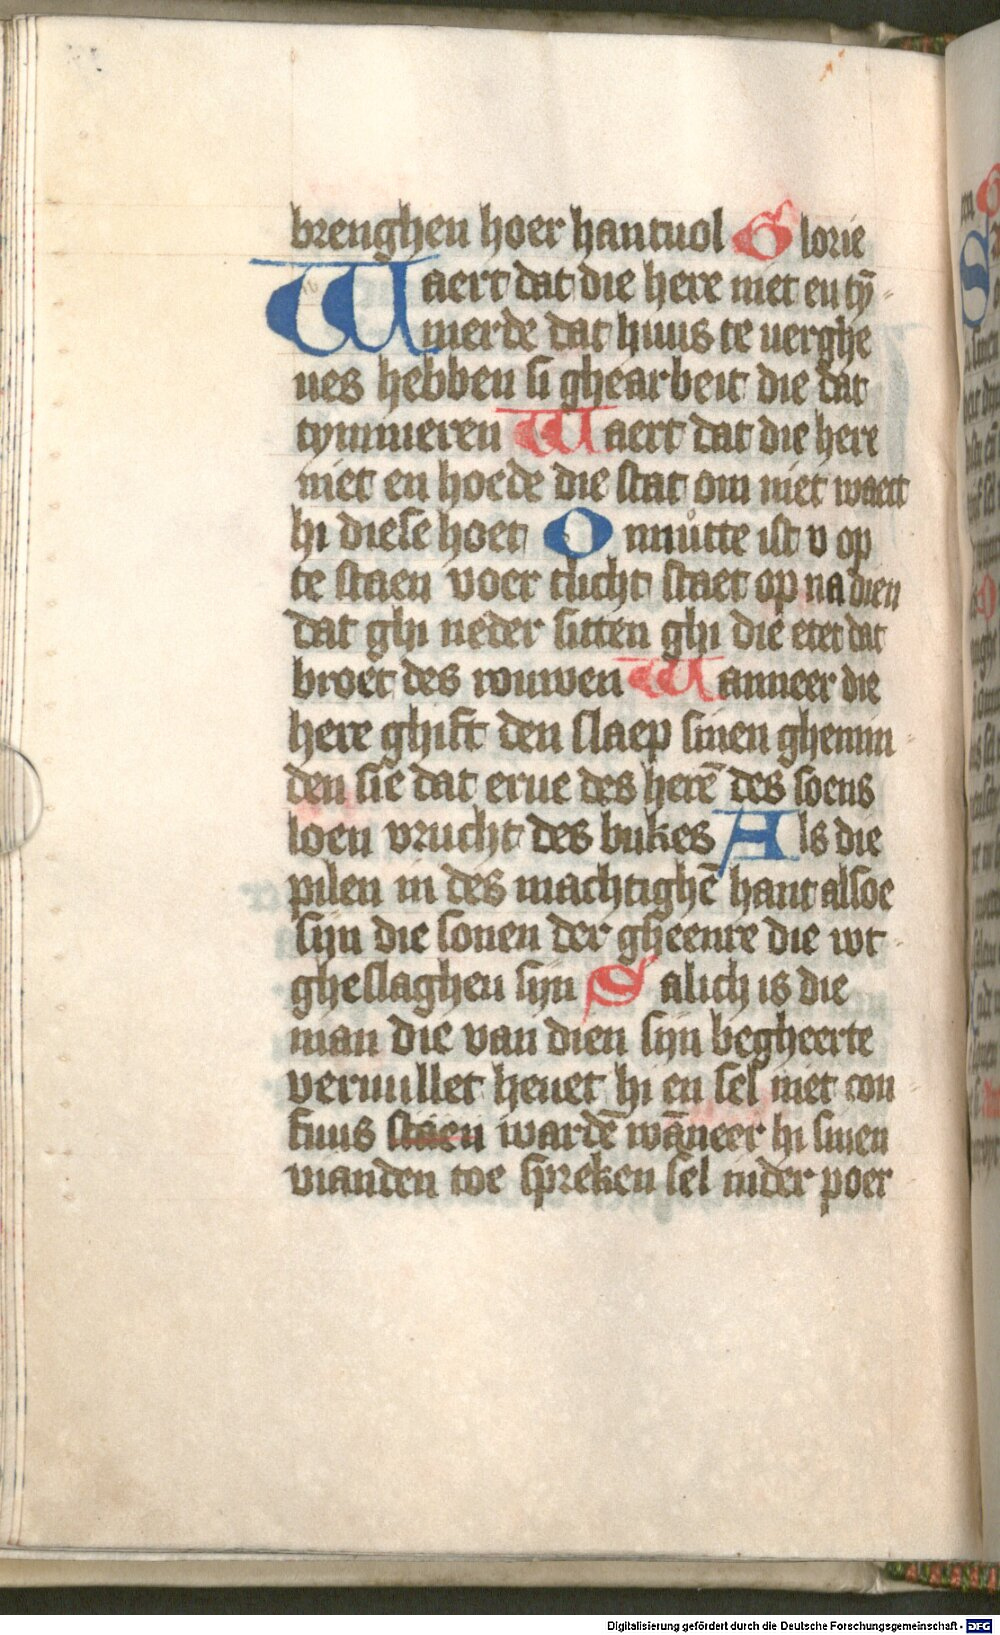 brenghen hoer hantuol Glorie
Waert dat die here niet en ty̅
merde dat huus te verghe
ues hebben si ghearbeit die dat
tymmeren Waert dat die here
niet en hoede die stat om niet waect
hi diese hoet Onnutte ist v op
te staen voer tlicht staet op na dien
dat ghi neder sitten ghi die etet dat
broet des rouwen Wanneer die
here ghift den slaep sinen ghemin
den sie dat erue des here̅ des soens
loen vrucht des bukes Als die
pilen in des machtighe̅ hant alsoe
sijn die sonen der gheenre die wt
gheslaghen sijn Salich is die
man die van dien sijn begheerte
veruullet heuet hi en sel niet con
fuus staen warde̅ wa̅neer hi sinen
vianden toe spreken sel inder poer
Digitalisierung gefördert durch die Deutsche Forschungsgemeinschaft - DFG